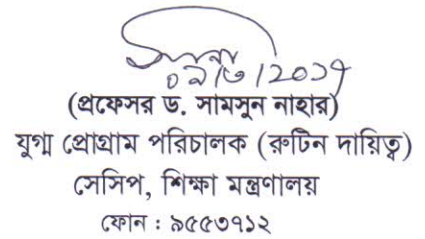 (প্রফেসর ড. সামসুন নাহার)
যুগ্ম প্রোগ্রাম পরিচালক (রুটিন দায়িত্ব)
সেসিপ, শিক্ষা মন্ত্রণালয়
ফোন : ৯৫৫৩৭১২